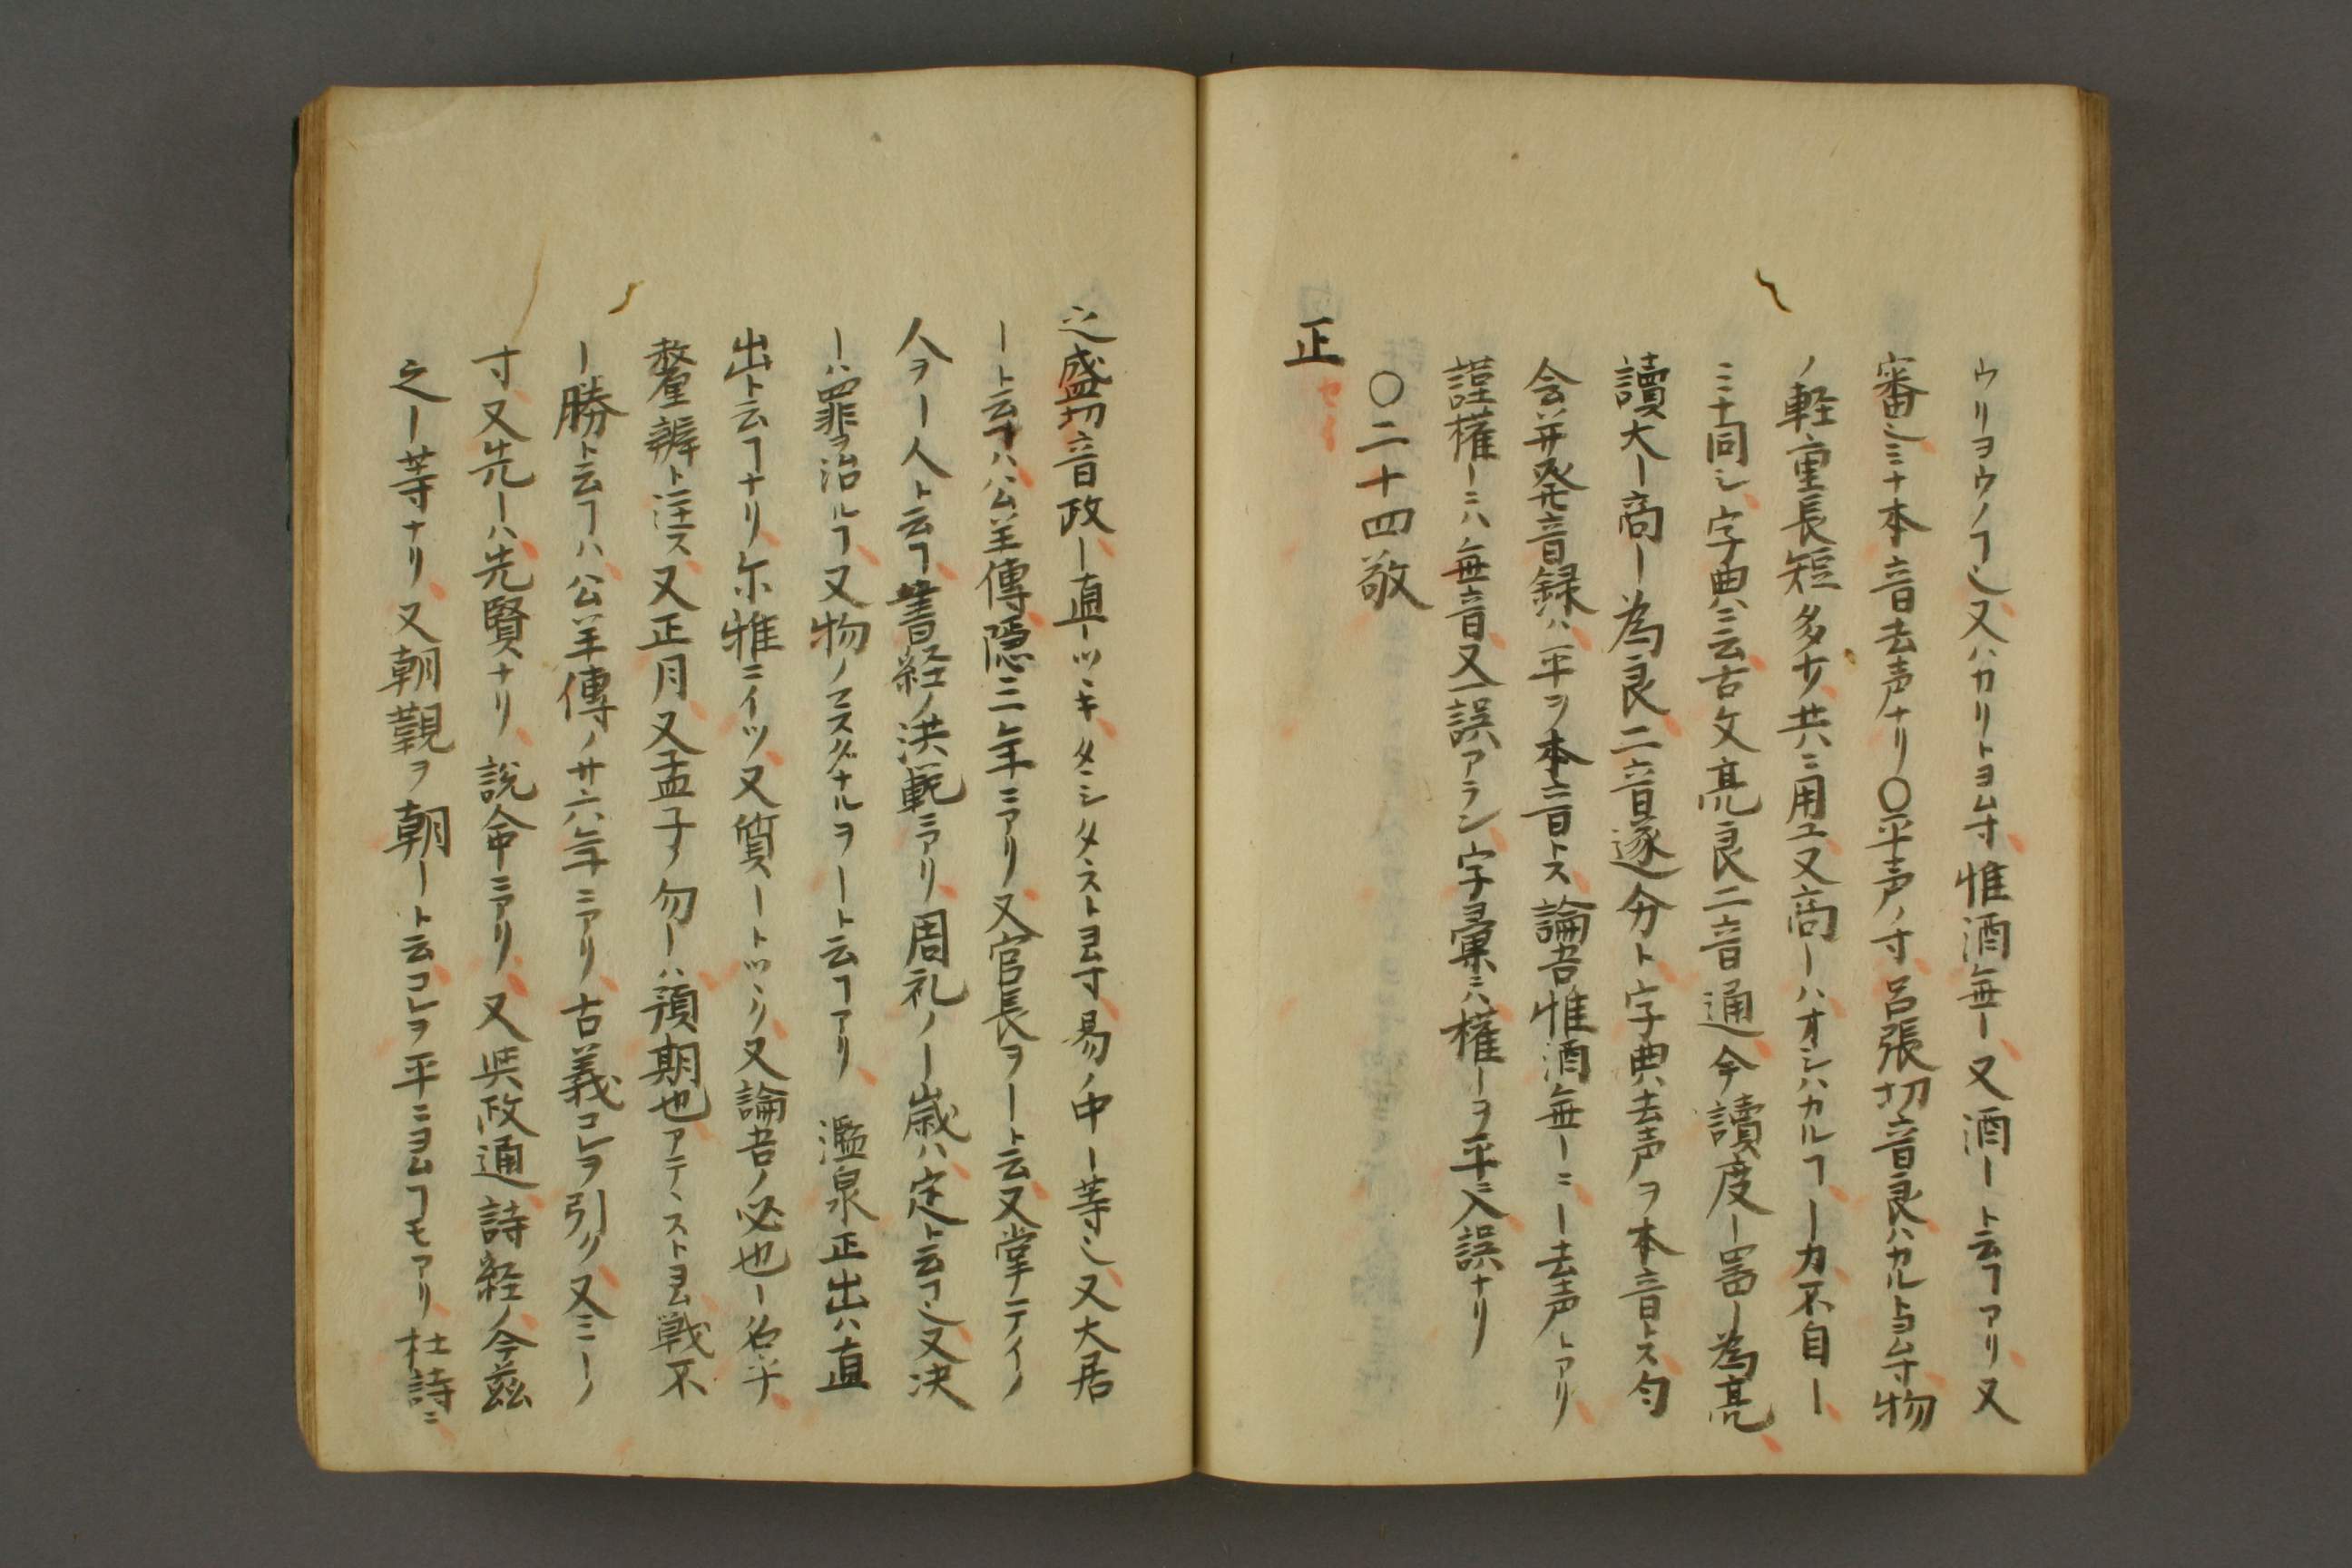 ウリヨウノヿ也又ハカリトヨム寸惟酒無ー又酒ート云ヿアリ又
審也ミナ本音去声ナリ〇平声ノ寸呂張切音良ハカルトヨム寸物
ノ軽重長短多少共ニ用ユ又商ーハオシハカルヿー力不自ー
ミナ同シ字典ニ云古文亮良二音通今讀度ー器ー為亮
讀大ー商ー為良二音遂分ト字典ハ去声ヲ本音トス匀
会并発音録ハ平ヲ本音トス論吾惟酒無ーニー去声トアリ
謹権ーニハ無音又誤アラン字彙ニハ権ーヲ平ニ入誤ナリ
〇二十四敬
正セイ
之盛切音政ー直ーツキタヽシタヽストヨム寸易ノ中ー等也又大居
ート云ヿハ公羊傳隠三年ニアリ又官長ヲート云又掌テイノ
人ヲー人ト云ヿ書経ノ洪範ニアリ周礼ノー歳ハ定ト云ヿ也又决
ーハ罪ヲ治ルヿ又物ノマスグナルヲート云ヿアリ濫泉正出ハ直
出ト云ヿナリ尓雅ニイツ又質ートツヽク又論吾ノ必也ー名乎
釐辨ト注ス又正月又孟子ノ勿ーハ預期也アテヽストヨム戦不
ー勝ト云ヿハ公羊傳ノ廿六年ニアリ古義コレヲ引ク又三ーノ
寸又先ーハ先賢ナリ説命ニアリ又與政通詩経ノ今茲
之ー等ナリ又朝覲ヲ朝ート云コレヲ平ニヨムヿモアリ杜詩ニ